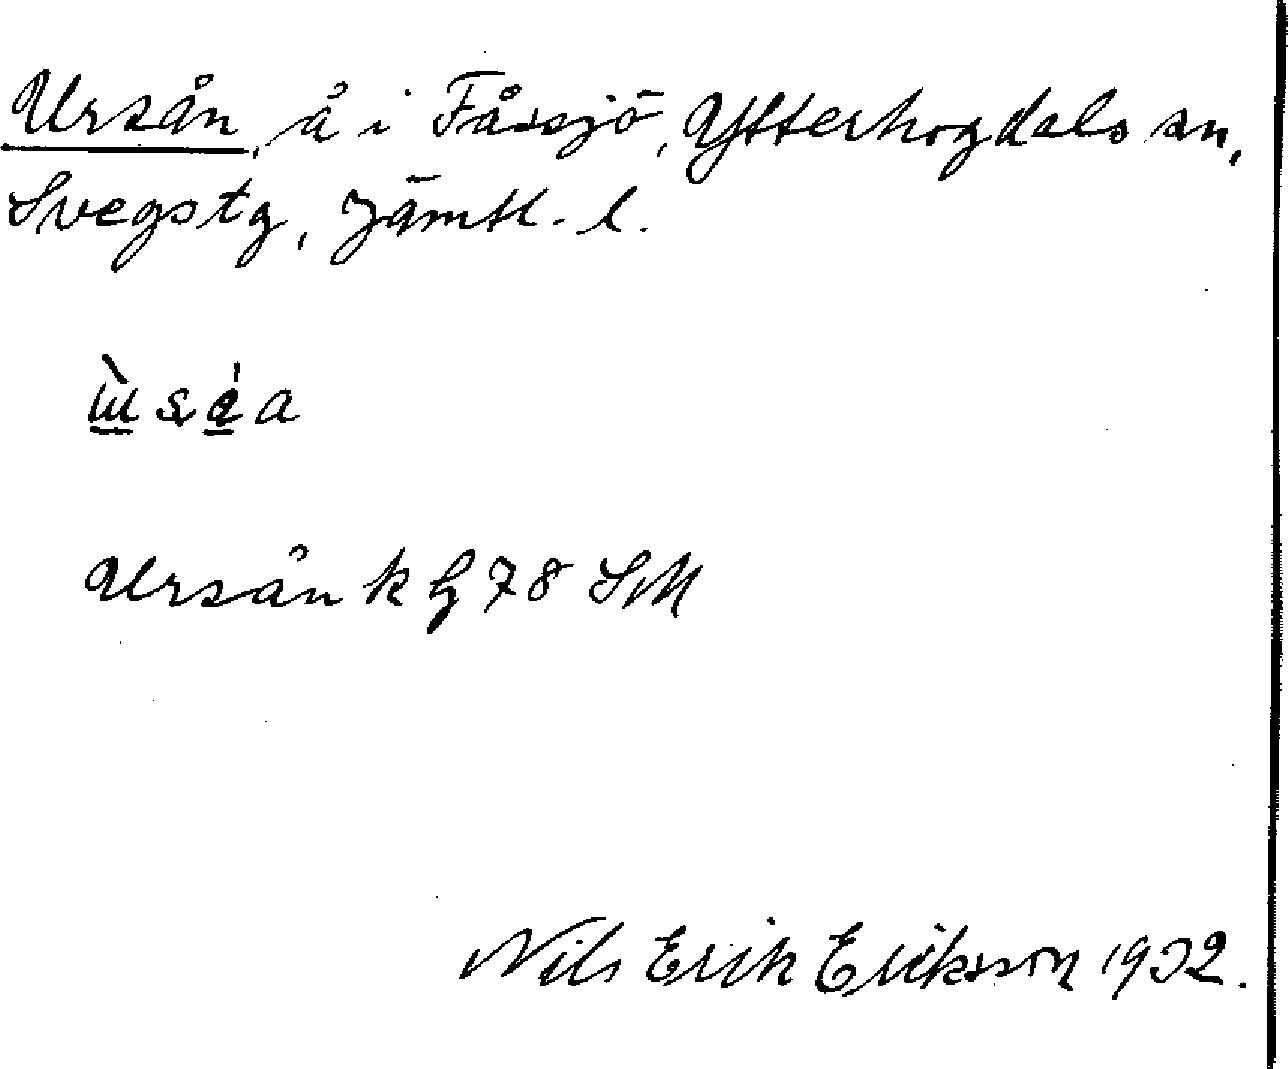 Ursån, å i Fåssjö, Ytterhogdals sn,
Svegs tg, Jämtl. l.
Ursån k G 78 SM
Nils Erik Eriksson 1932.